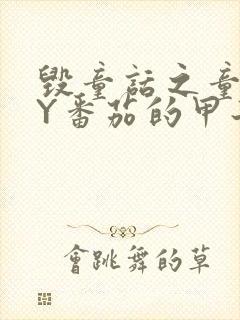 毀童話之童
Y番茄的甲
會跳舞的草